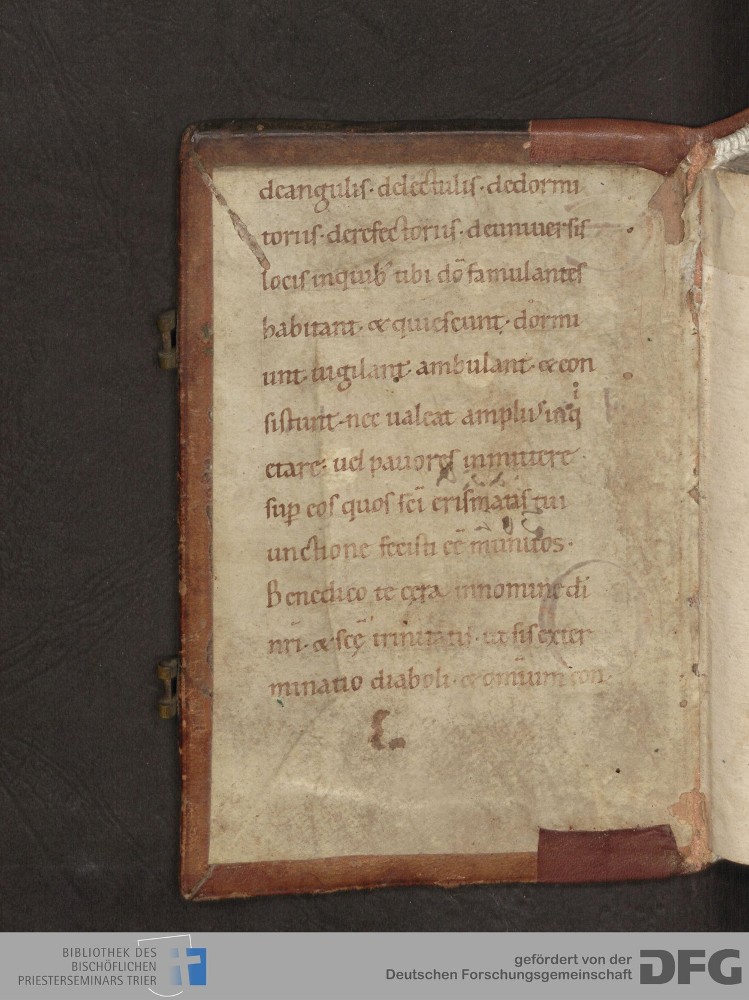 deangulis· delectulis· dedormi
toriis· derefectoriis· deuniuersis
locis inquib' tibi dō famulantes
habitant· & quiescunt· dormi
unt uigilant· ambulant· & con
sistunt· nec ualeat amplius inqͥ
etare· uel pauores inmittere
sup̄ eos quos sc̄i crismatis tui
unctione fecisti eē munitos·
Benedico te cera innomine dī
nr̄i· & scę trinitatis· ut sis exter
minatio diaboli· & omīum con
BIBLIOTHEK DES
BISCHÖFLICHEN
PRIESTERSEMINARS TRIER
gefördert von der
Deutschen Forschungsgemeinschaft
DFG